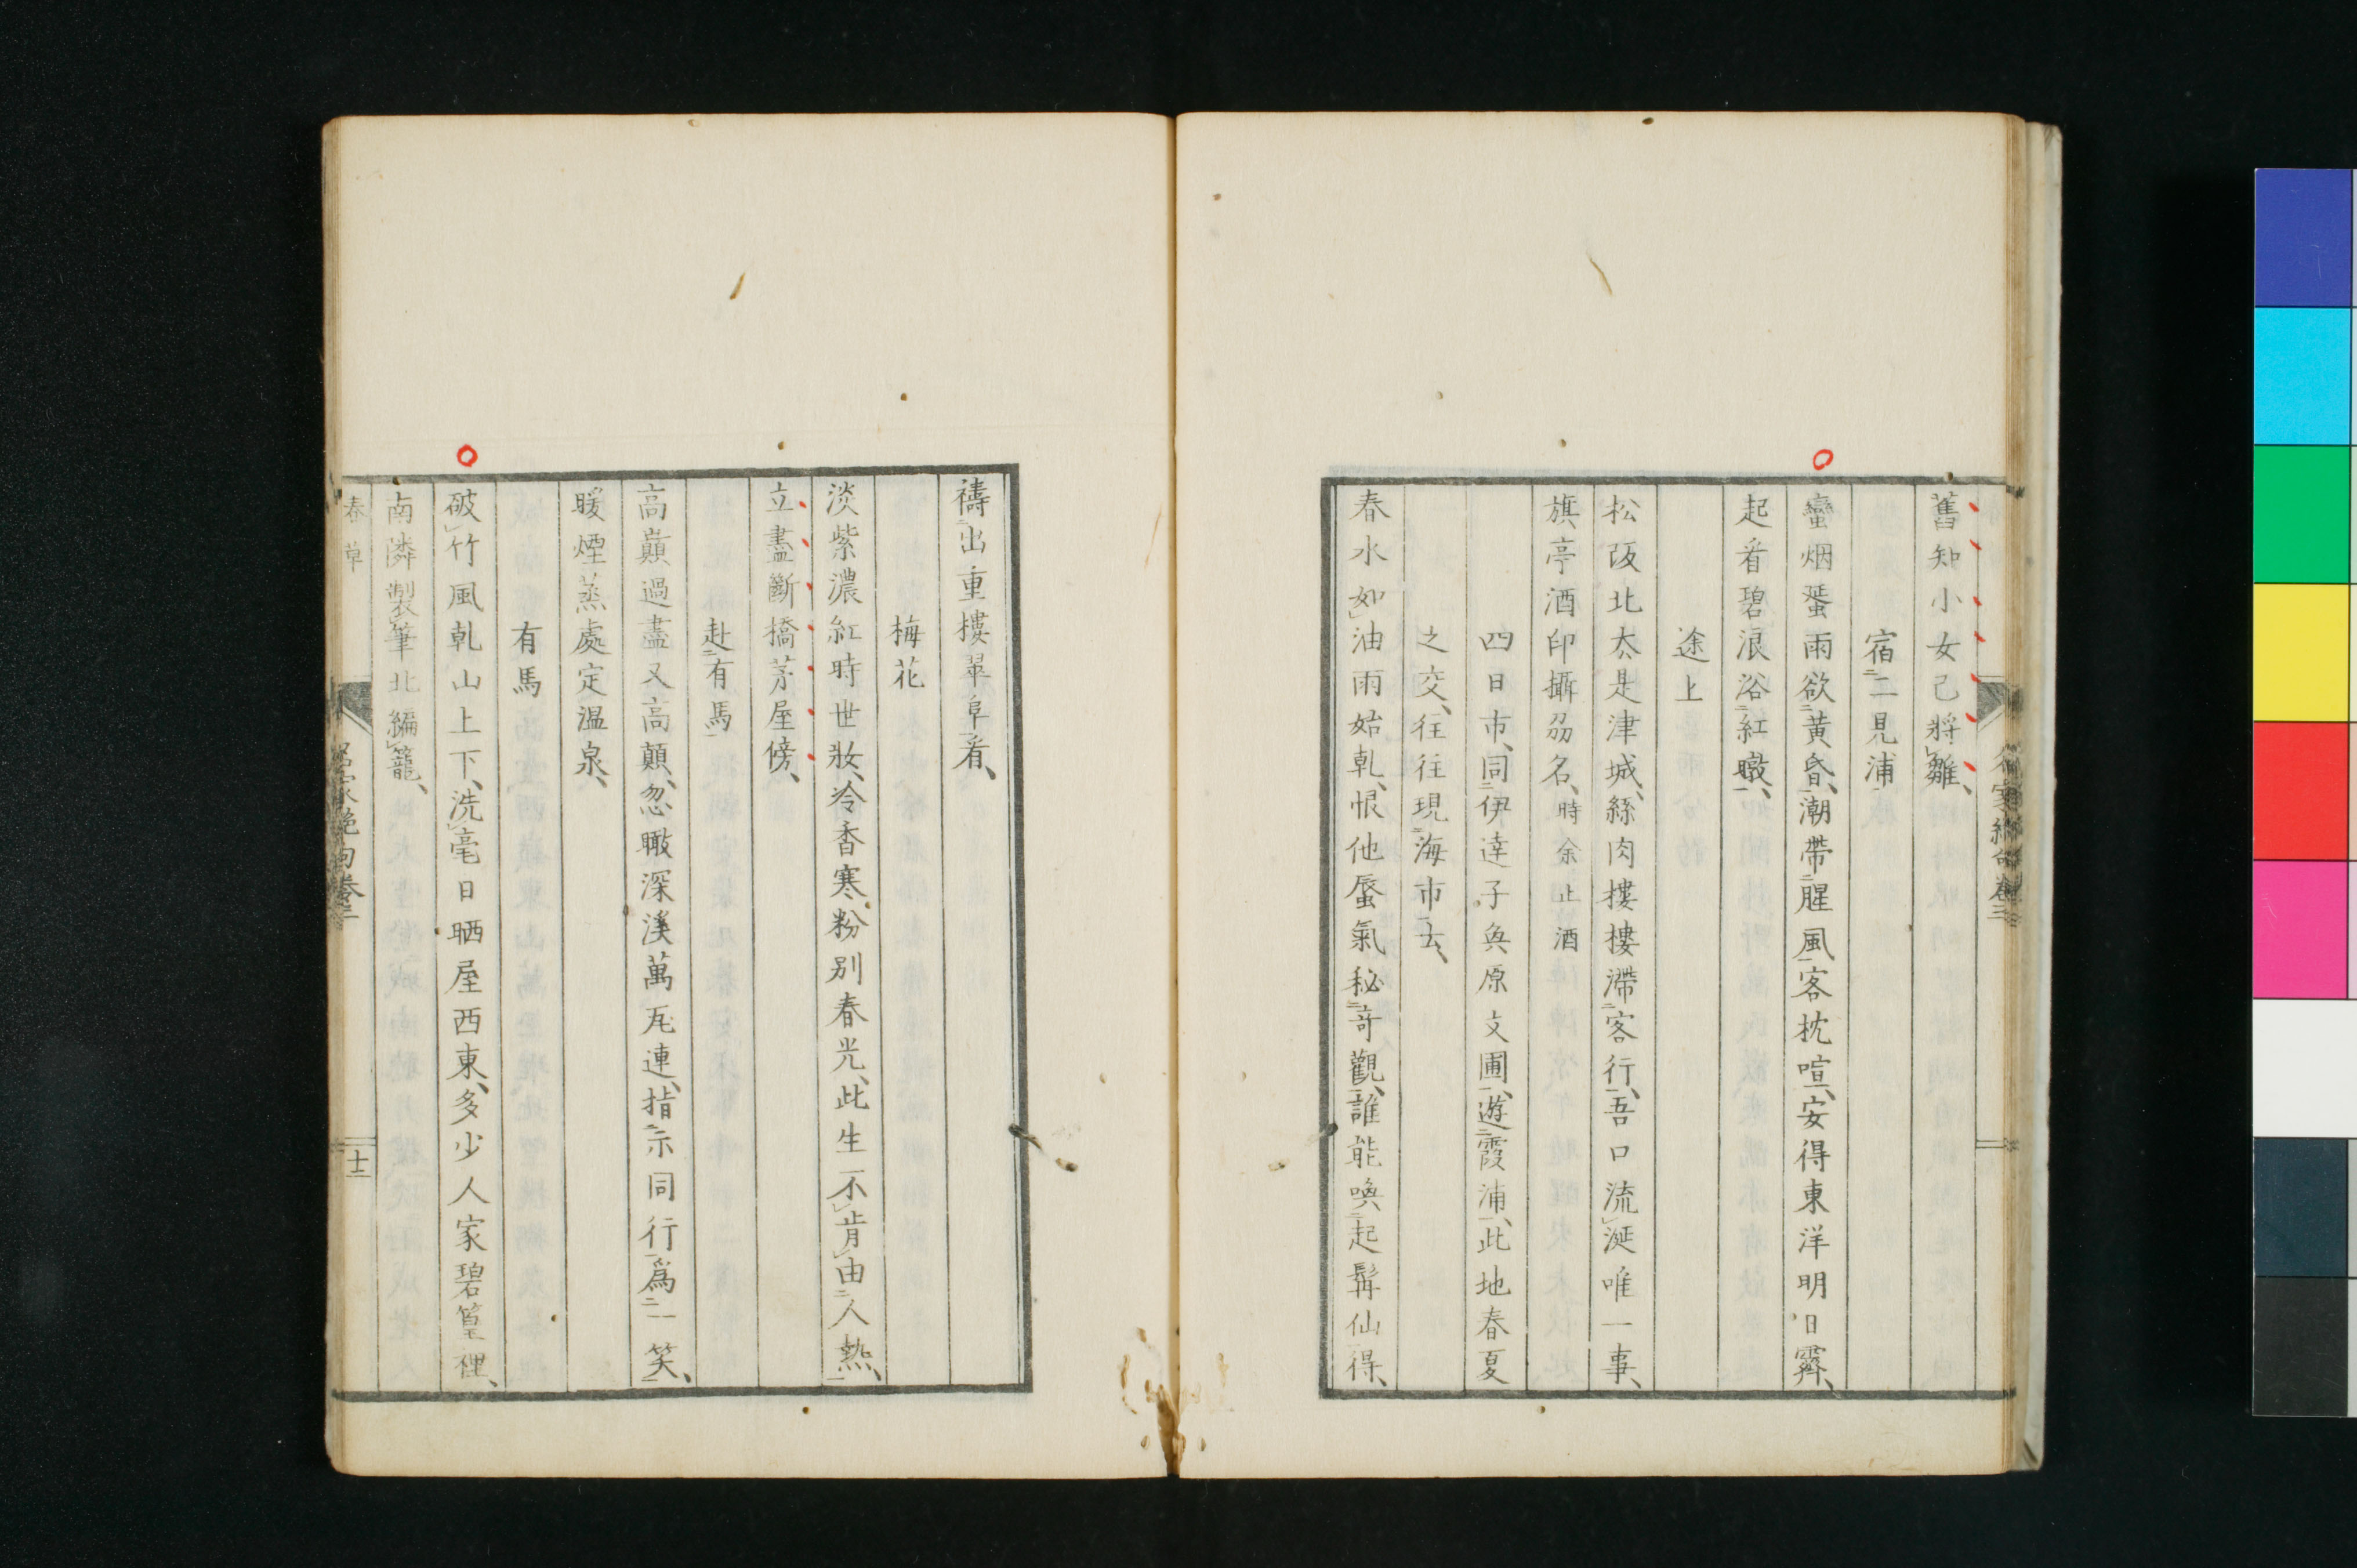 舊知小女已將雛、
宿二見浦
蠻烟蜑雨欲黃昏、潮帶腥風客枕喧、安得東洋明日霽、
起看碧浪浴紅暾、
途上
松阪北太是津城、絲肉樓樓滯客行、吾口流涎唯一事、
旗亭酒印攝刕名、時余止酒
四日市、同伊達子奐原文圃、遊霞浦、此地春夏
之交、往往現海市云、
春水如油雨始乾、恨他蜃氣秘奇觀、誰能喚起髯仙得、
禱出重樓翠阜看、
梅花
淡紫濃紅時世妝、冷香寒粉別春光、此生不肯由人熱、
立盡斷橋茅屋傍、
赴有馬
高巔過盡又高顛、忽瞰深溪萬瓦連、指示同行爲一笑、
暖煙蒸處定溫泉、
有馬
破竹風乾山上下、洗毫日晒屋西東、多少人家碧篁裡、
南隣製筆北編籠、
春草 名家絶句卷二 十二